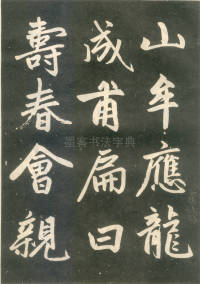 山牟應龍
成甫扁曰
壽春會親
墨客书法字典